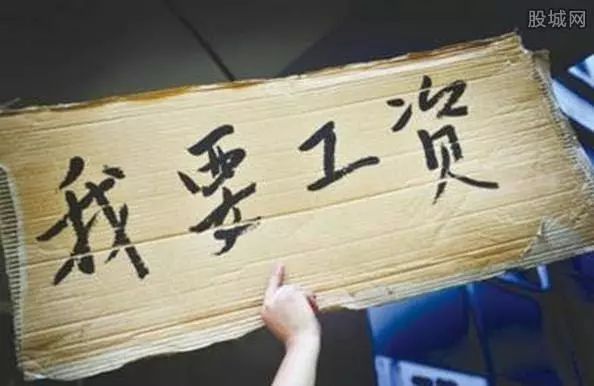 股城网
我要工资